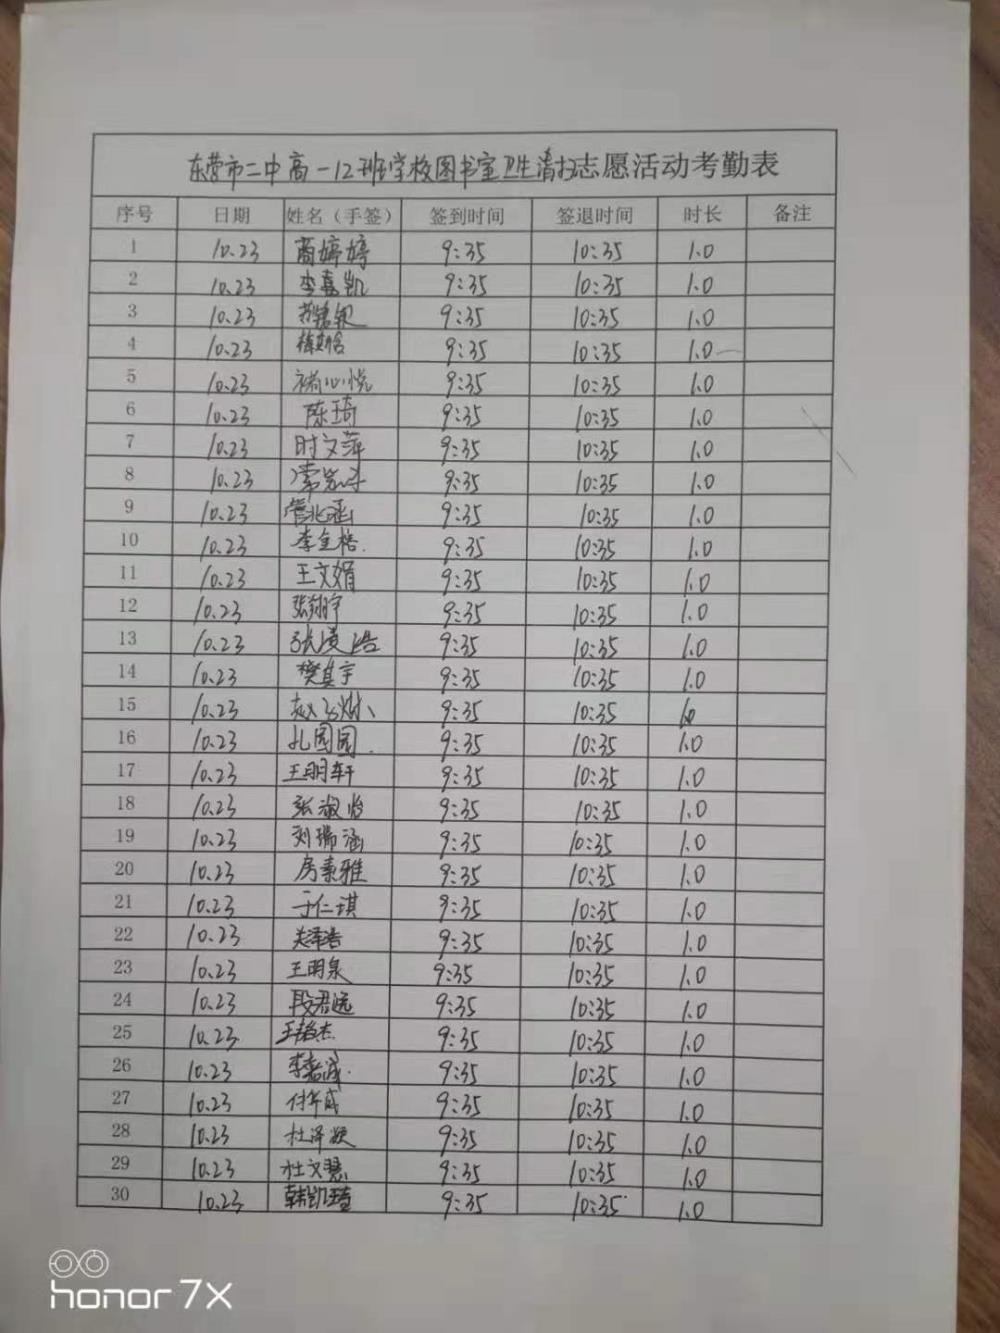 东营市二中高一12班学校图书室卫生清扫志愿活动考勤表
序号 日期 姓名（手签） 签到时间 签退时间 时长 备注
1 10.23 商婷婷 9:35 10:35 1.0
2 10.23 李嘉凯 9:35 10:35 1.0
3 10.23 9:35 10:35 1.0
4 10.23 9:35 10:35 1.0
5 10.23 心悦 9:35 10:35 1.0
6 10.23 陈琦 9:35 10:35 1.0
7 10.23 时文萍 9:35 10:35 1.0
8 10.23 9:35 10:35 1.0
9 10.23 9:35 10:35 1.0
10 10.23 李金格 9:35 10:35 1.0
11 10.23 王文娟 9:35 10:35 1.0
12 10.23 张翔宇 9:35 10:35 1.0
13 10.23 张凌浩 9:35 10:35 1.0
14 10.23 樊其宇 9:35 10:35 1.0
15 10.23 赵 9:35 10:35 1.0
16 10.23 孔园园 9:35 10:35 1.0
17 10.23 王明轩 9:35 10:35 1.0
18 10.23 张淑怡 9:35 10:35 1.0
19 10.23 刘瑞涵 9:35 10:35 1.0
20 10.23 房素雅 9:35 10:35 1.0
21 10.23 于仁琪 9:35 10:35 1.0
22 10.23 9:35 10:35 1.0
23 10.23 王明泉 9:35 10:35 1.0
24 10.23 段君远 9:35 10:35 1.0
25 10.23 9:35 10:35 1.0
26 10.23 9:35 10:35 1.0
27 10.23 9:35 10:35 1.0
28 10.23 杜泽 9:35 10:35 1.0
29 10.23 杜文慧 9:35 10:35 1.0
30 10.23 韩凯 9:35 10:35 1.0
honor 7X